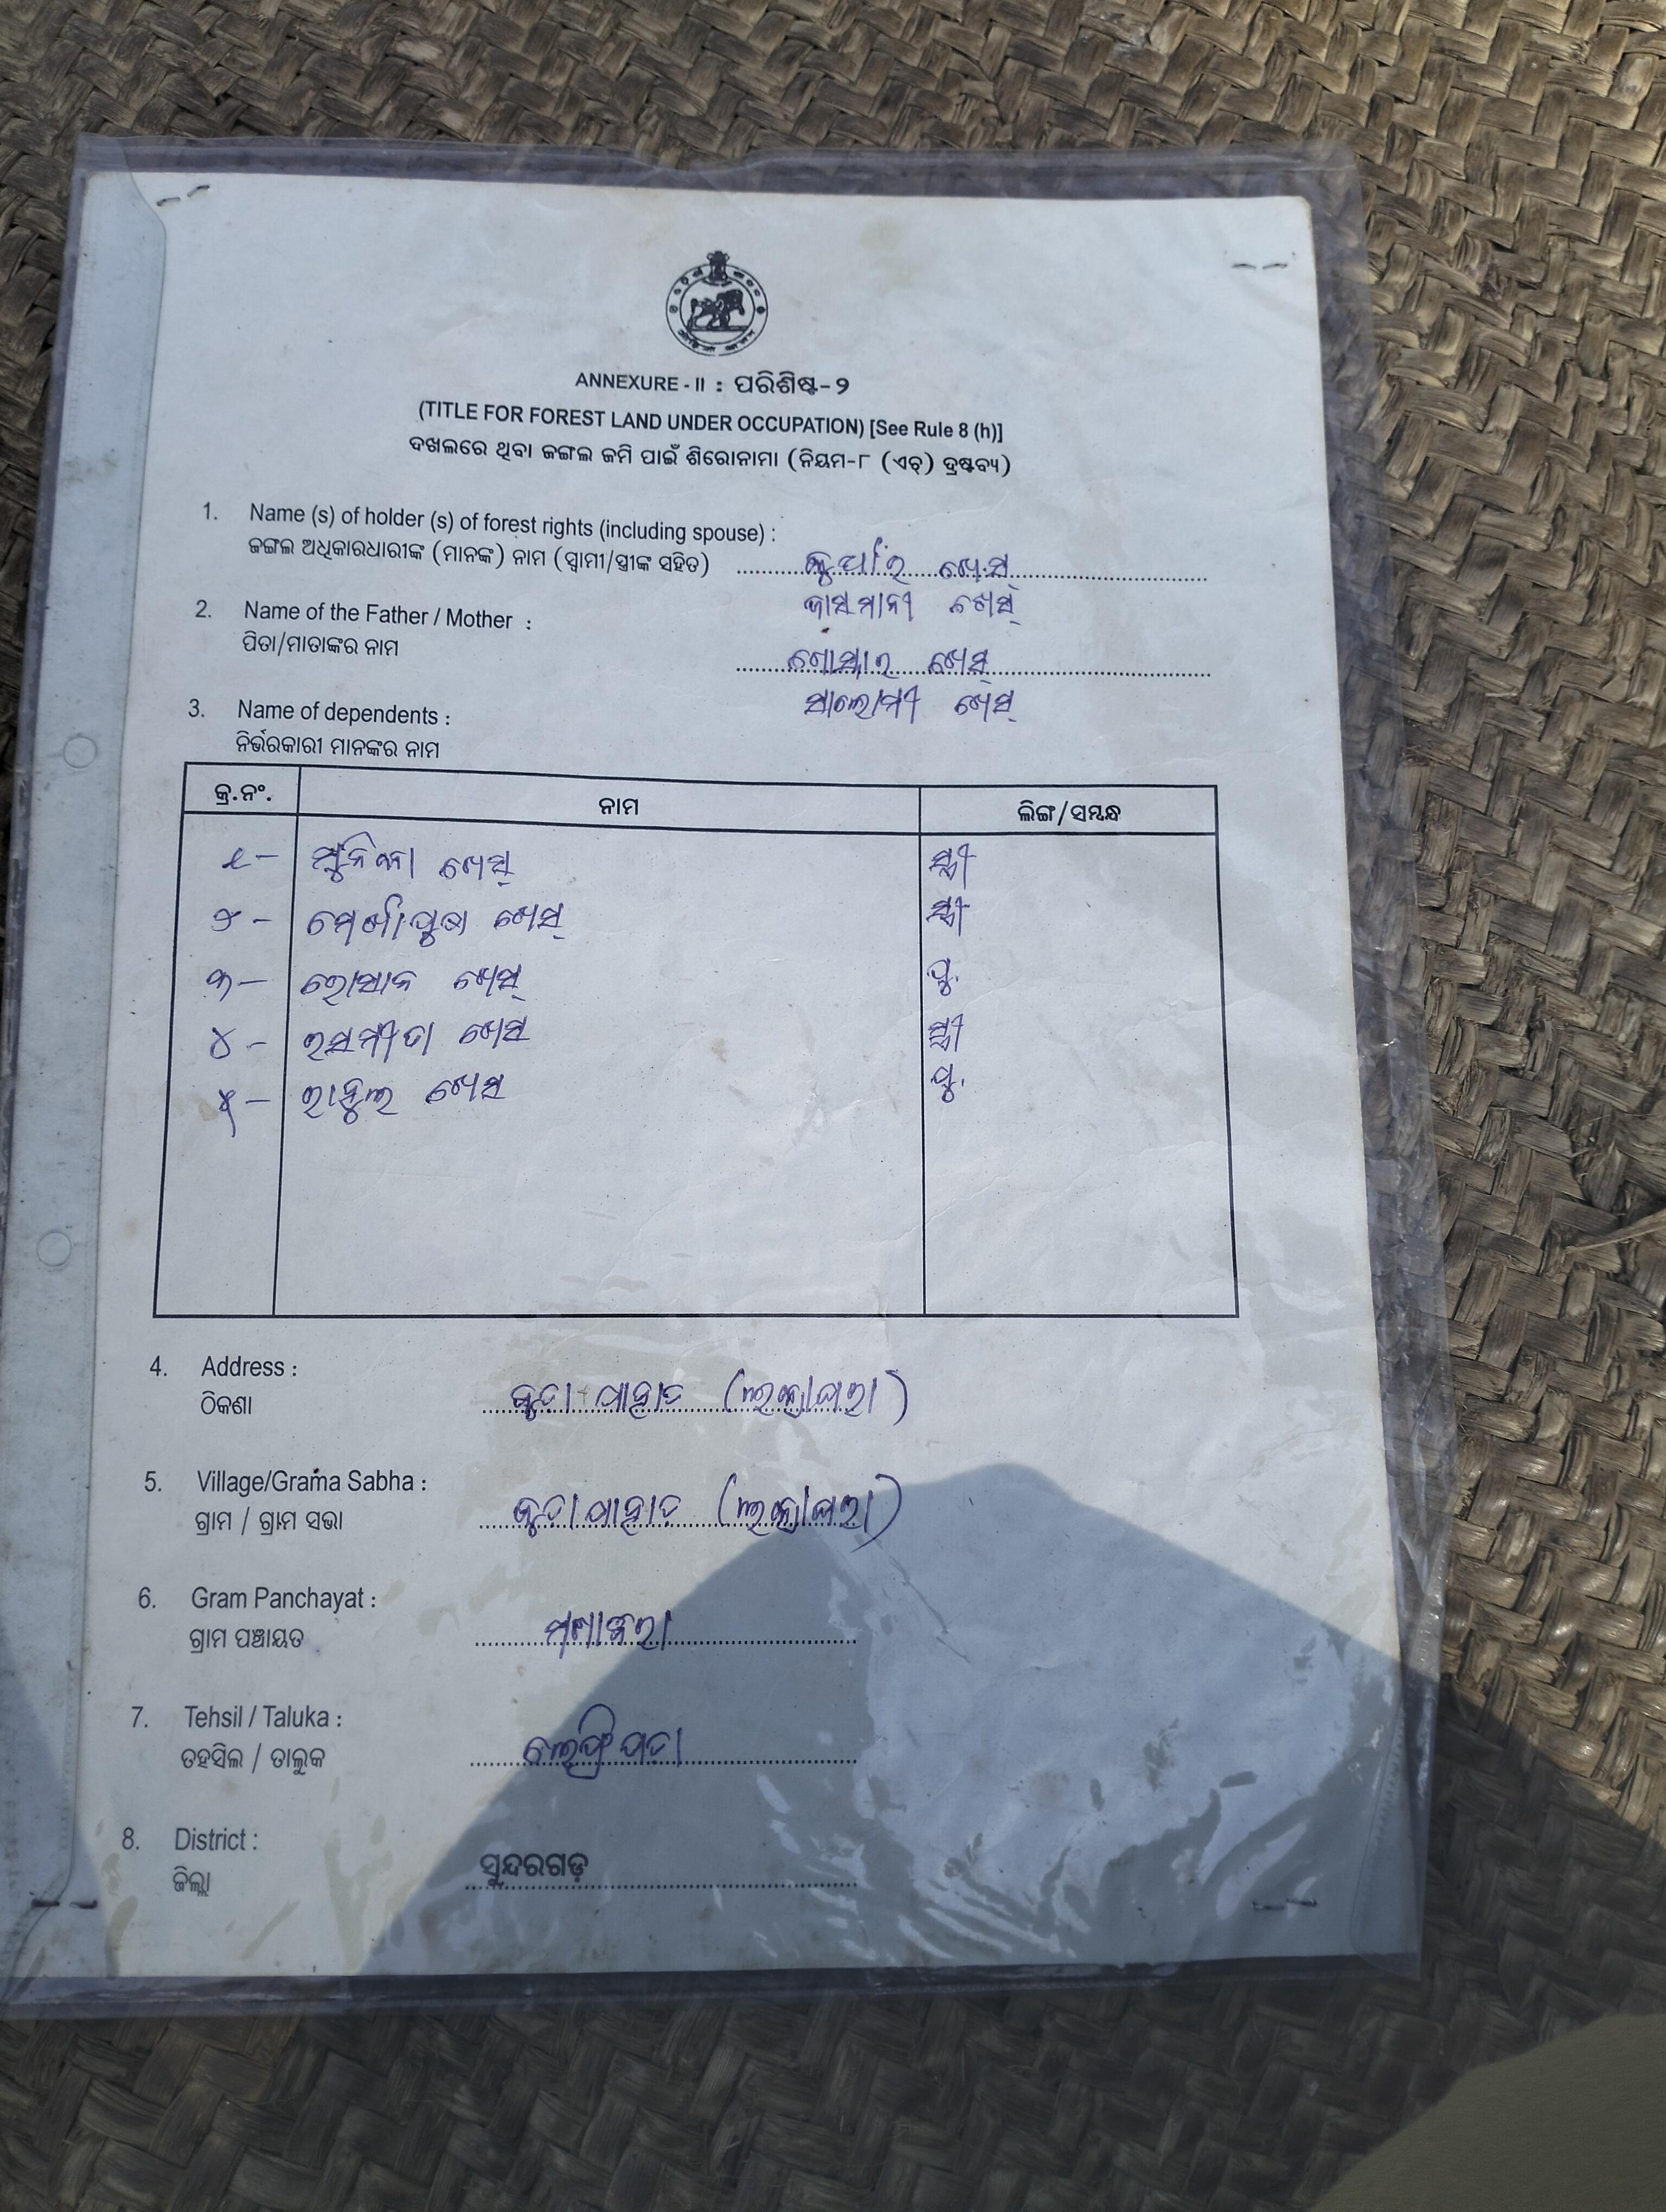 ANNEXURE - II : ପରିଶିଷ୍ଟ-୨
(TITLE FOR FOREST LAND UNDER OCCUPATION) [See Rule 8 (h)]
ଦଖଲରେ ଥିବା ଜଙ୍ଗଲ ଜମି ପାଇଁ ଶିରୋନାମା (ନିୟମ-୮ (ଏଚ୍) ଦ୍ରଷ୍ଟବ୍ୟ)
1. Name (s) of holder (s) of forest rights (including spouse) :
ଜଙ୍ଗଲ ଅଧିକାରଧାରୀଙ୍କ (ମାନଙ୍କ) ନାମ (ସ୍ୱାମୀ/ସ୍ତ୍ରୀଙ୍କ ସହିତ) ଖେସ୍
2. Name of the Father / Mother : ଖେସ୍
ପିତା/ମାତାଙ୍କର ନାମ ଖେସ୍
3. Name of dependents : ସାଲୋମୀ ଖେସ୍
ନିର୍ଭରକାରୀ ମାନଙ୍କର ନାମ
କ୍ର.ନଂ. ନାମ ଲିଙ୍ଗ/ସମ୍ବନ୍ଧ
୧- ଖେସ୍ ସ୍ତ୍ରୀ
୨- ଖେସ୍ ସ୍ତ୍ରୀ
୩- ରୋସାନ ଖେସ୍ ପୁ.
୪- ଖେସ୍ ସ୍ତ୍ରୀ
୫- ରାହୁଲ ଖେସ୍ ପୁ.
4. Address :
ଠିକଣା
5. Village/Grama Sabha :
ଗ୍ରାମ / ଗ୍ରାମ ସଭା
6. Gram Panchayat :
ଗ୍ରାମ ପଞ୍ଚାୟତ
7. Tehsil / Taluka :
ତହସିଲ / ତାଲୁକ ଲେଫ୍ରିପଡା
8. District :
ଜିଲ୍ଲା ସୁନ୍ଦରଗଡ଼